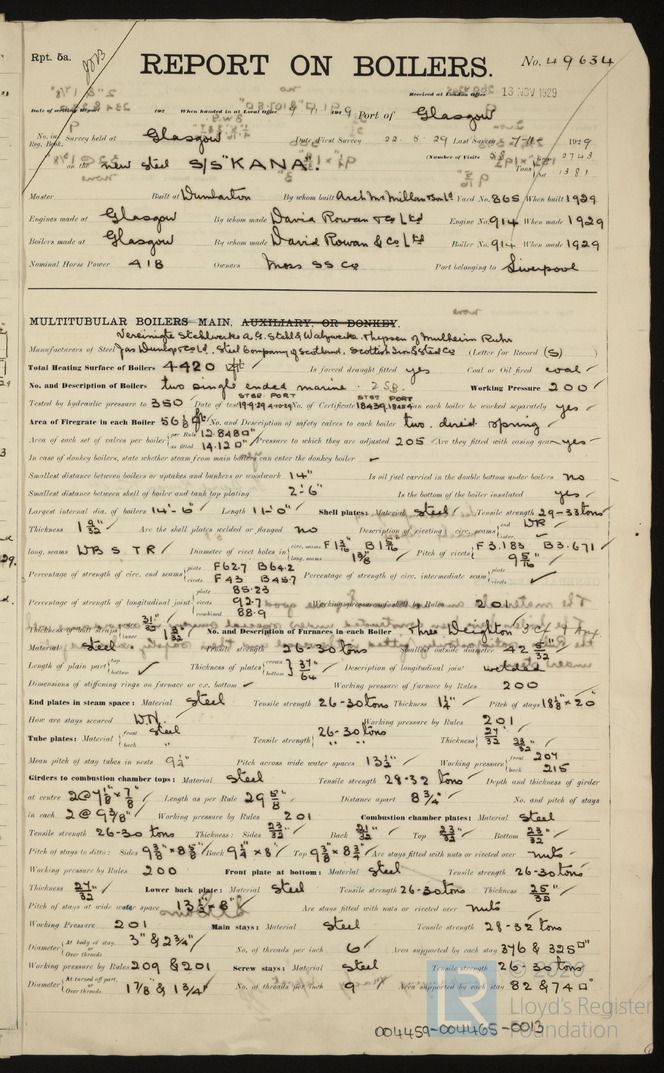 Rpt. 5a.
REPORT ON BOILERS.
No. 49634
Received at London Office 13 NOV 1929
Date of writing Report 192 When handed in at Local Office 192 Port of Glasgow
No. in Reg. Book. Survey held at Glasgow Date, First Survey 22.8.29 Last Survey 1929
on the new steel S/S "KANA". (Number of Visits Tons 2743 1381
Master Built at Dumbarton By whom built Arch McMillan & Son Ld Yard No. 865 When built 1929
Engines made at Glasgow By whom made David Rowan & Co Ltd Engine No. 914 When made 1929
Boilers made at Glasgow By whom made David Rowan & Co Ltd Boiler No. 914 When made 1929
Nominal Horse Power 418 Owners Moss SS Co Port belonging to Liverpool
MULTITUBULAR BOILERS MAIN, AUXILIARY, OR DONKEY.
Vereinigte Stahlwerke A.G. Stahl & Walzwerke. Thyssen of Mulheim Ruhr
Manufacturers of Steel Jas Dunlop & Co Ld. Steel Company of Scotland. Scottish Iron & Steel Co (Letter for Record (S) )
Total Heating Surface of Boilers 4420 Is forced draught fitted yes Coal or Oil fired coal
No. and Description of Boilers two single ended marine 2SB. Working Pressure 200
STAR. PORT STAR PORT
Tested by hydraulic pressure to 350 Date of test No. of Certificate Can each boiler be worked separately yes
Area of Firegrate in each Boiler No. and Description of safety valves to each boiler two. direct spring
Area of each set of valves per boiler per Rule 12.848 as fitted 14.12 Pressure to which they are adjusted 205 Are they fitted with easing gear yes
In case of donkey boilers, state whether steam from main boilers can enter the donkey boiler
Smallest distance between boilers or uptakes and bunkers or woodwork 14" Is oil fuel carried in the double bottom under boilers no
Smallest distance between shell of boiler and tank top plating 2'-6" Is the bottom of the boiler insulated yes
Largest internal dia. of boilers 14'-6" Length 11'-0" Shell plates: Material steel Tensile strength 29-33 tons
Thickness 1 9/32" Are the shell plates welded or flanged no Description of riveting: circ. seams end DR inter.
long. seams DBS. TR Diameter of rivet holes in circ. seams F 1 3/16" B 1 5/16" long. seams 1 3/8" Pitch of rivets F 3.183 B 3.671 9 5/16"
Percentage of strength of circ. end seams plate F 62.7 B 64.2 rivets F 43 B 45.7 Percentage of strength of circ. intermediate seam plate rivets
Percentage of strength of longitudinal joint plate 85.23 rivets 92.7 combined 88.9 Working pressure of shell by Rules 201
Thickness of butt straps outer 31/32" inner 1 3/32" No. and Description of Furnaces in each Boiler three Deighton
Material steel Tensile strength 26-30 tons Smallest outside diameter 42 5/32
Length of plain part top bottom Thickness of plates crown bottom 37/64" Description of longitudinal joint welded
Dimensions of stiffening rings on furnace or c.c. bottom Working pressure of furnace by Rules 200
End plates in steam space: Material steel Tensile strength 26-30 tons Thickness 1 1/4" Pitch of stays 18 1/8" x 20"
How are stays secured DN. Working pressure by Rules 201
Tube plates: Material front steel back " Tensile strength 26-30 tons " " Thickness 27/32 23/32"
Mean pitch of stay tubes in nests 9 1/4" Pitch across wide water spaces 13 1/2" Working pressure front 207 back 215
Girders to combustion chamber tops: Material steel Tensile strength 28-32 tons Depth and thickness of girder
at centre 2@7 1/8" x 7/8" Length as per Rule 29 5/8" Distance apart 8 3/4" No. and pitch of stays
in each 2 @ 9 3/8" Working pressure by Rules 201 Combustion chamber plates: Material steel
Tensile strength 26-30 tons Thickness: Sides 23/32" Back 21/32" Top 23/32" Bottom 23/32"
Pitch of stays to ditto: Sides 9 3/8" x 8 5/8" Back 9 1/4" x 8" Top 9 3/8" x 8 3/4" Are stays fitted with nuts or riveted over nuts
Working pressure by Rules 200 Front plate at bottom: Material steel Tensile strength 26-30 tons
Thickness 27/32" Lower back plate: Material steel Tensile strength 26-30 tons Thickness 25/32"
Pitch of stays at wide water space 13 1/2" x 8" Are stays fitted with nuts or riveted over nuts
Working Pressure 201 Main stays: Material steel Tensile strength 28-32 tons
Diameter At body of stay, or Over threads 3" & 2 3/4" No. of threads per inch 6 Area supported by each stay 376 & 325
Working pressure by Rules 209 & 201 Screw stays: Material steel Tensile strength 26-30 tons
Diameter At turned off part, or Over threads 1 7/8 & 1 3/4" No. of threads per inch 9 Area supported by each stay 82 & 74
© 2020
LR
Lloyd's Register
Foundation
004459-004465-0013